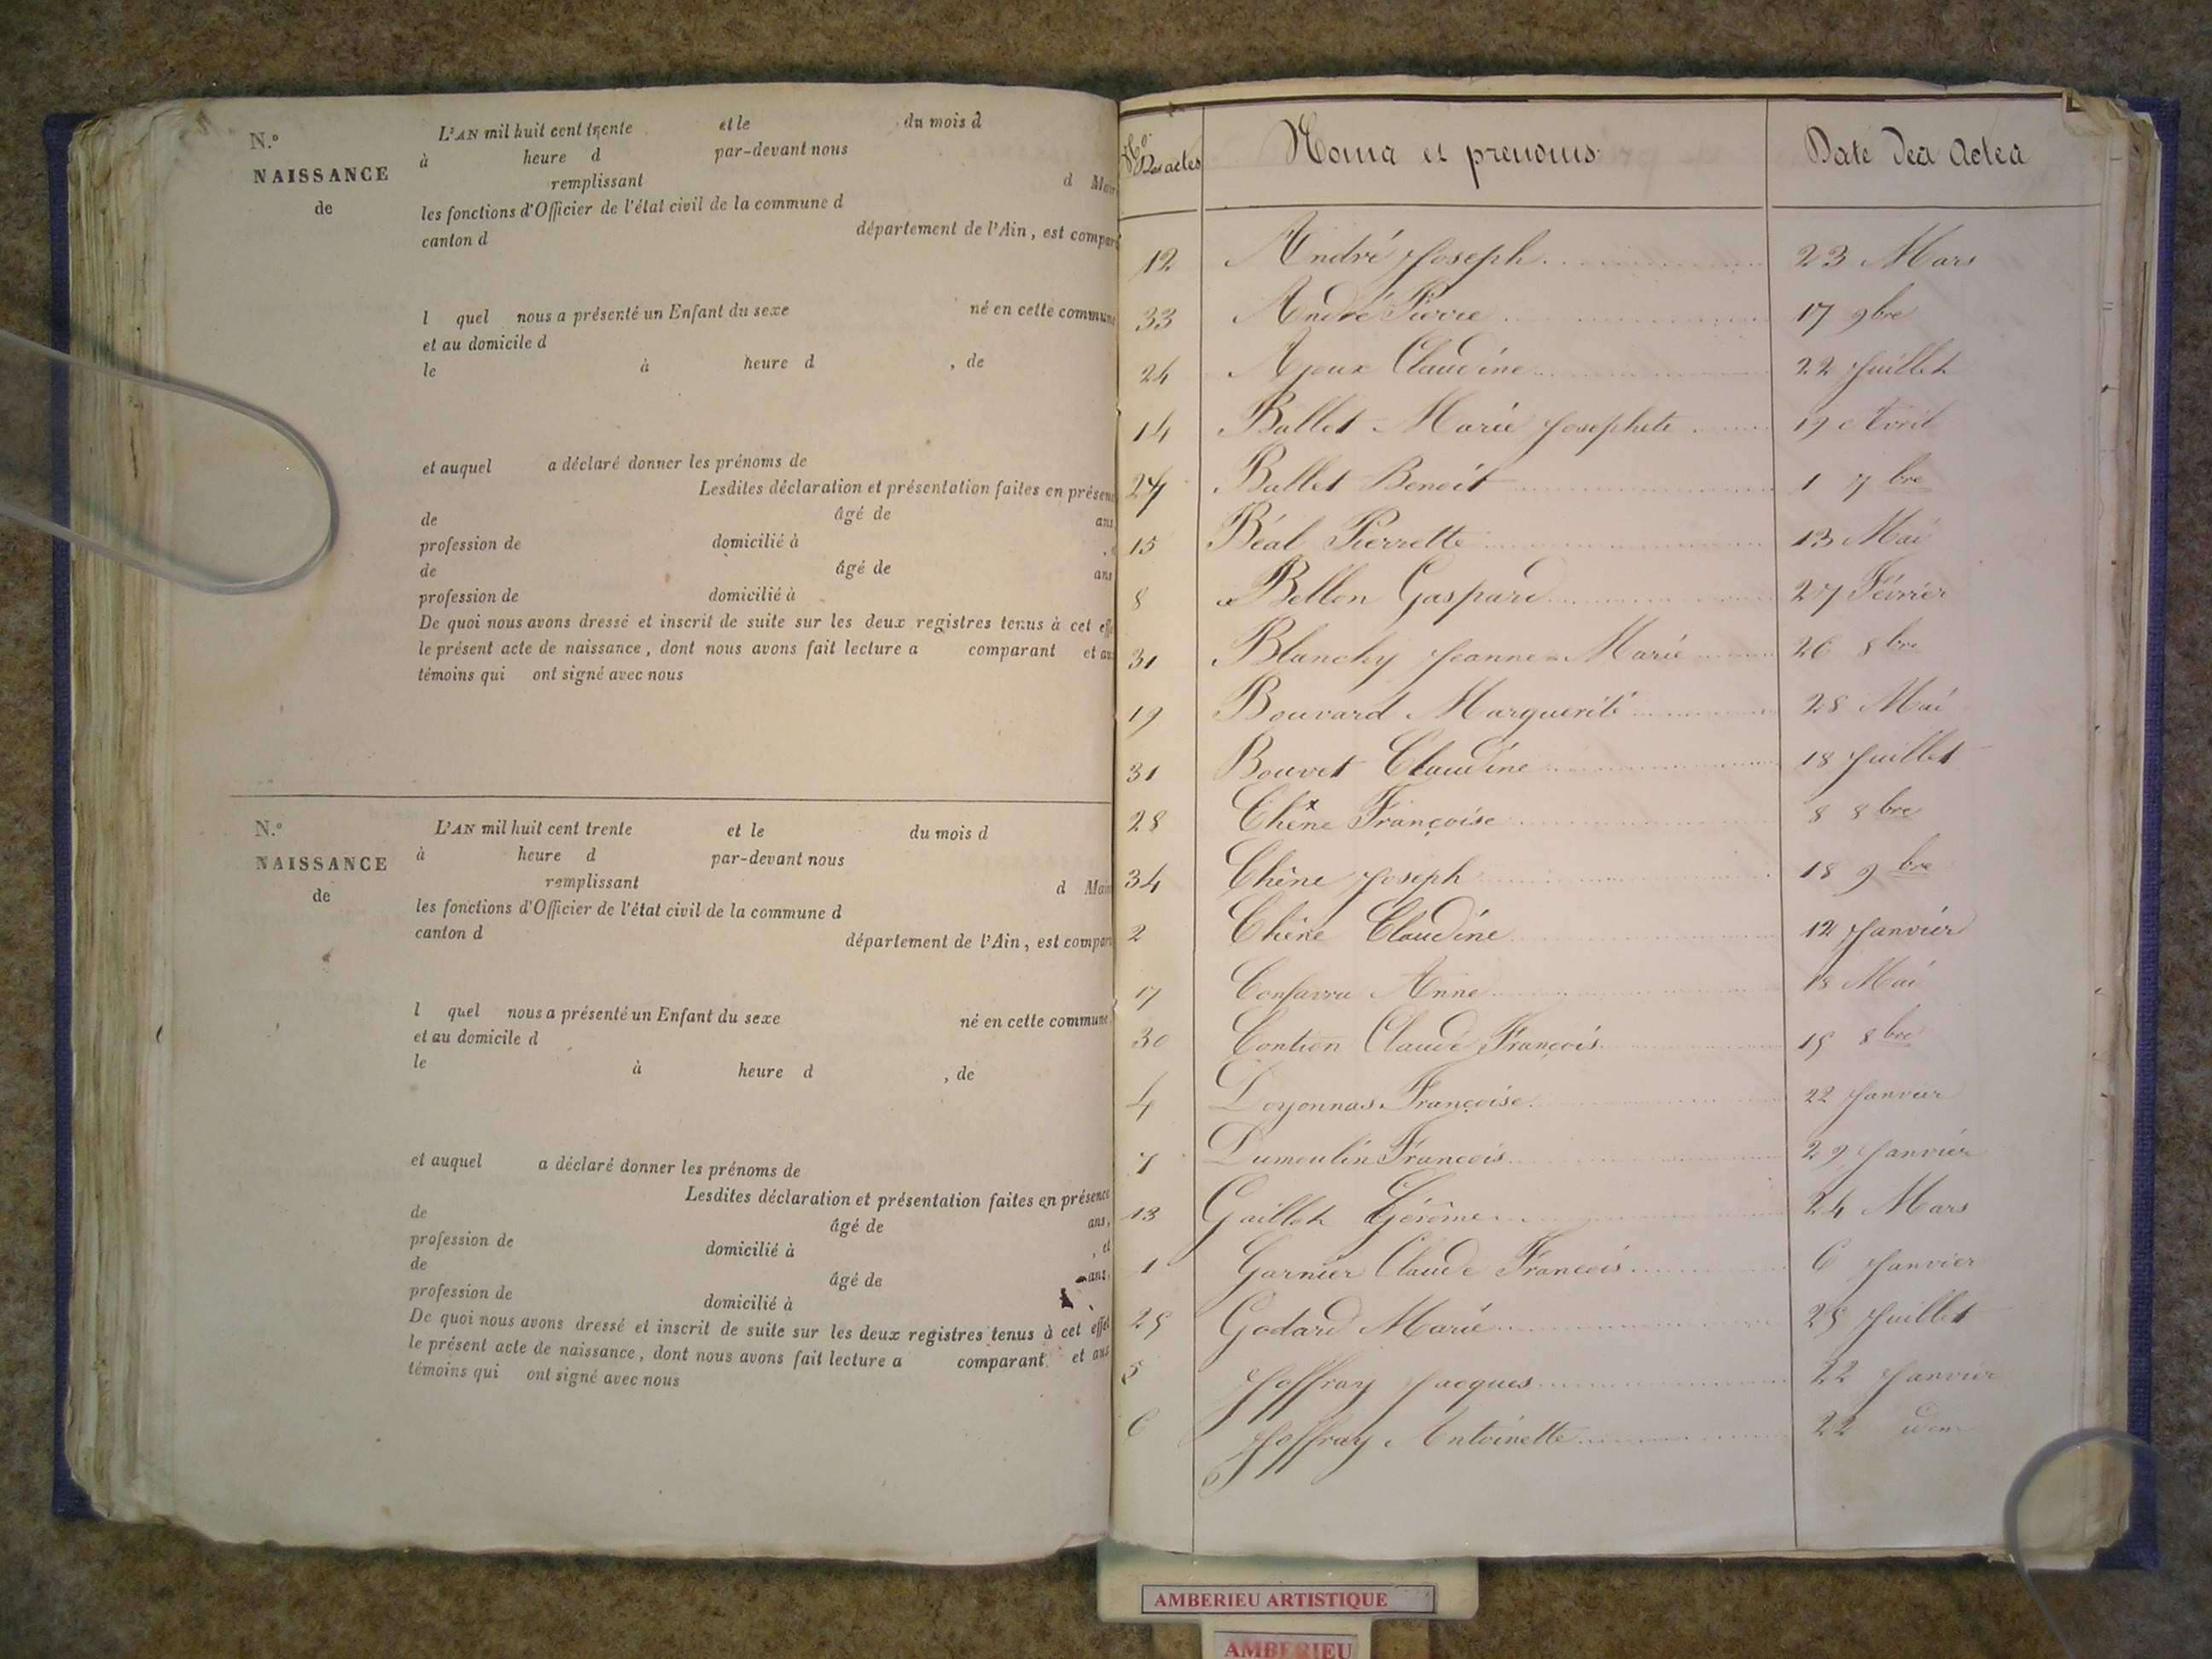 N.º
NAISSANCE
de
L'AN mil huit cent trente et le du mois d
à heure d par-devant nous
remplissant d Mair
les fonctions d'Officier de l'état civil de la commune d
canton d département de l'Ain, est compar
l quel nous a présenté un Enfant du sexe né en cette commune
et au domicile d
le à heure d , de
et auquel a déclaré donner les prénoms de
Lesdites déclaration et présentation faites en présen
de âgé de ans
profession de domicilié à , e
de âgé de ans
profession de domicilié à
De quoi nous avons dressé et inscrit de suite sur les deux registres tenus à cet effe
le présent acte de naissance, dont nous avons fait lecture a comparant et au
témoins qui ont signé avec nous
N.º
NAISSANCE
de
L'AN mil huit cent trente et le du mois d
à heure d par-devant nous
remplissant d Mair
les fonctions d'Officier de l'état civil de la commune d
canton d département de l'Ain, est compar
l quel nous a présenté un Enfant du sexe né en cette commune
et au domicile d
le à heure d , de
et auquel a déclaré donner les prénoms de
Lesdites déclaration et présentation faites en présence
de âgé de ans,
profession de domicilié à , et
de âgé de ans,
profession de domicilié à
De quoi nous avons dressé et inscrit de suite sur les deux registres tenus à cet effet
le présent acte de naissance, dont nous avons fait lecture a comparant et aux
témoins qui ont signé avec nous
Nos Des actes Noms et prenoms Date des Actes
12 André Joseph 23 Mars
33 André Pierre 17 9bre
24 Ajoux Claudine 22 Juillet
14 Ballet Marie Josephete 19 Avril
27 Ballet Benoit 1 7bre
15 Béal Pierrette 13 Mai
8 Bellon Gaspard 27 Février
31 Blanchy Jeanne=Marie 26 8bre
19 Bouvard Marguerite 28 Mai
31 Bouvet Claudine 18 Juillet
28 Chêne Françoise 8 8bre
34 Chêne Joseph 18 9bre
2 Chêne Claudine 12 Janvier
17 Anne 18 Mai
30 Contion Claude François 15 8bre
4 Doyonnas Françoise 22 Janvier
7 Dumoulin François 29 Janvier
13 Gaillot Gérôme 24 Mars
1 Garnier Claude François 6 Janvier
25 Godard Marie 25 Juillet
5 Joffray Jacques 22 Janvier
6 Joffray Antoinette 22 idem
AMBERIEU ARTISTIQUE
AMBERIEU